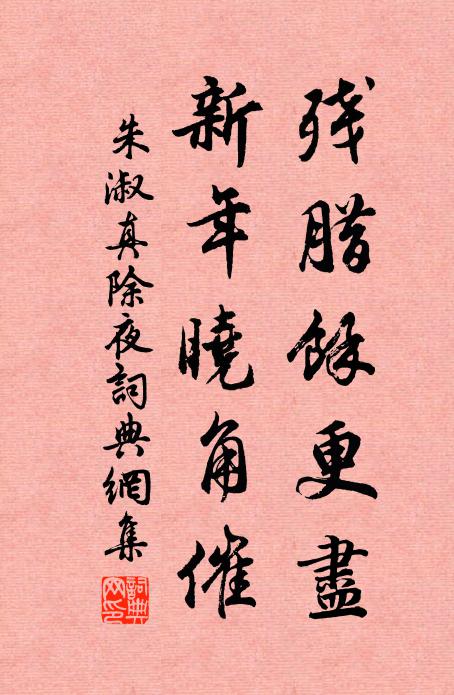 残腊餘更盡
新年曉角催
朱淑真除夜詞典網集
詞典网印